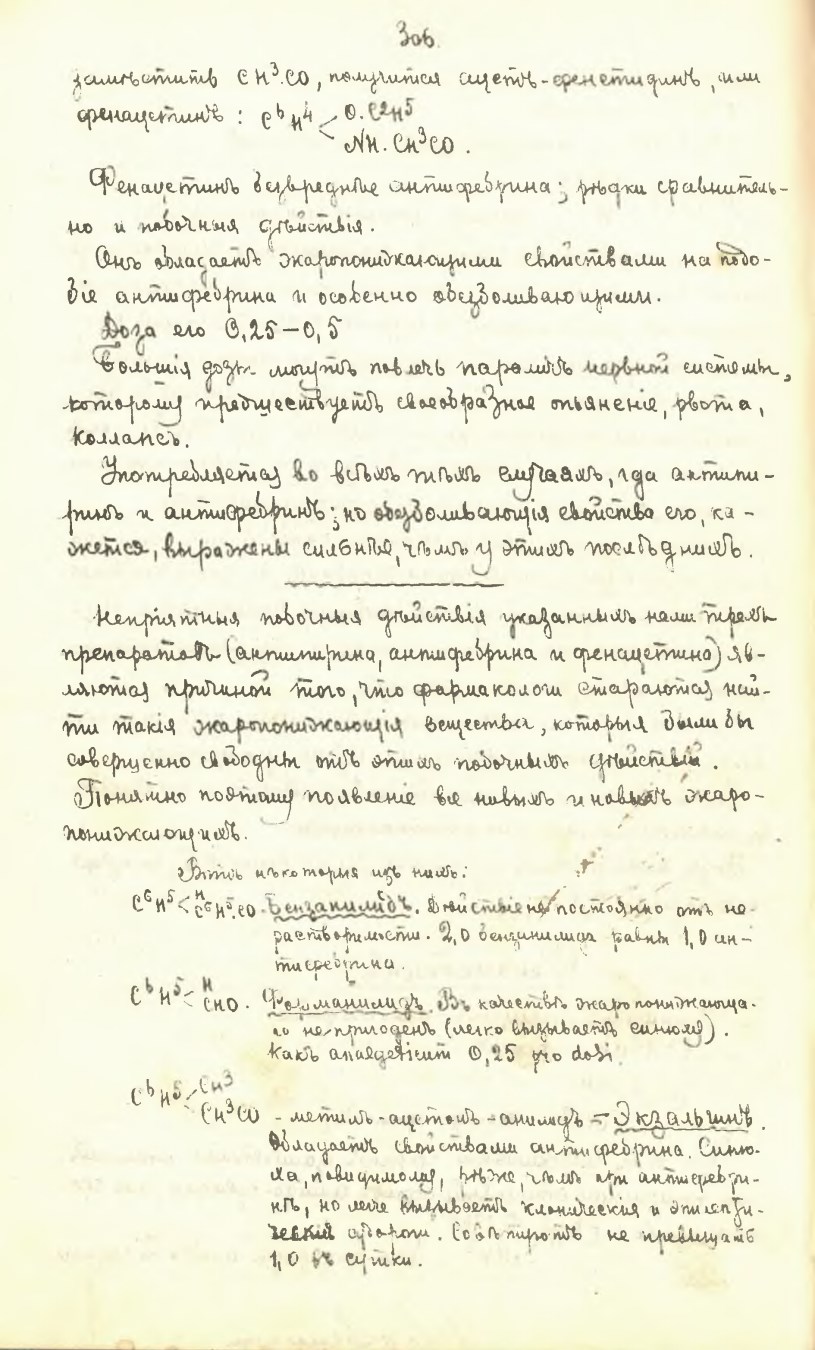 306
замѣстить CH³.CO, получится ацетъ-фенетидинъ, или
фенацетинъ: C⁶H⁴ < O.C²H⁵
NH.CH³CO.
Фенацетинъ безвреднѣе антифебрина; рѣдки сравнитель-
но и побочныя дѣйствія.
Онъ обладаетъ жаропонижающими свойствами на подо-
біе антифебрина и особенно обезболивающими.
Доза его 0,25–0,5
Большія дозы могутъ повлечь параличъ нервной системы,
которому предшествуетъ своеобразное опьяненіе, рвота,
коллапсъ.
Употребляется во всѣхъ тѣхъ случаяхъ, гдѣ антипи-
ринъ и антифебринъ; но обезболивающія свойства его, ка-
жется, выражены сильнѣе, чѣмъ у этихъ послѣднихъ.
Непріятныя побочныя дѣйствія указанныхъ нами трехъ
препаратовъ (антипирина, антифебрина и фенацетина) яв-
ляются причиной того, что фармакологи стараются най-
ти такія жаропонижающія вещества, которыя были бы
совершенно свободны отъ этихъ побочныхъ дѣйствій.
Понятно поэтому появленіе все новыхъ и новыхъ жаро-
понижающихъ.
Вотъ нѣкоторыя изъ нихъ:
C⁶H⁵ < H C⁶H⁵.CO Бензанилидъ. Дѣйствіе не постоянно отъ не-
растворимости. 2,0 бензанилида равны 1,0 ан-
тифебрина.
C⁶H⁵ < H CHO. Форманилидъ. Въ качествѣ жаропонижающа-
го не пригоденъ (легко вызываетъ синюху).
Какъ analgeticum 0,25 pro dosi
C⁶H⁵ < CH³
CH³CO - метилъ-ацетъ-анилидъ = Экзальгинъ.
Обладаетъ свойствами антифебрина. Синю-
ха, повидимому, рѣже, чѣмъ при антифебри-
нѣ, но легче вызываетъ клоническія и эпилепти-
ческія судороги. Совѣтуютъ не превышать
1,0 въ сутки.